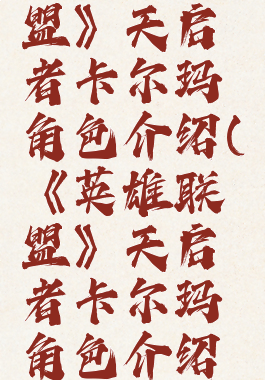 盟》天启
者卡尔玛
角色介绍(
《英雄联
盟》天启
者卡尔玛
角色介绍